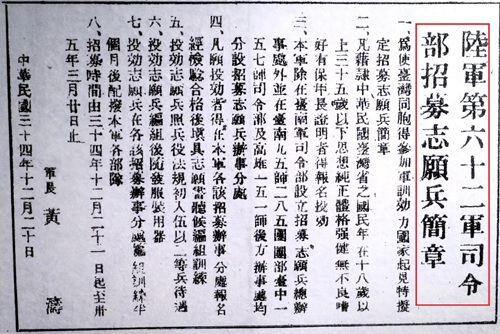 陸軍第六十二軍司令
部招募志願兵簡章
一、為使臺灣同胞得參加軍訓効力國家起見特擬
定招募志願兵簡章
二、凡藉隸中華民國臺灣省之國民年在十八歲以
上三十五歲以下思想純正體格强健無不良嗜
好有保甲長證明者得報名投効
三、本軍除在臺南軍司令部設立招募志願兵總辦
事處外並在臺南九五師二八五團團部臺中一
五七師司令部及高雄一五一師後方辦事處均
分設招募志願兵辦事分處
四、凡願投効者得在本軍各該招募辦事分處報名
經檢驗合格後填具志願書聽候編組訓練
五、投効志願兵照兵役法規初入伍以二等兵待遇
六、投効志願兵編組後隨發服裝用器
七、投効志願兵編組後在該招募辦事分處訓練半
個月後配撥本軍各部隊
八、招募時間由三十四年十二月二十一日起至卅
五年三月廿日止
中華民國三十四年十二月二十日
軍長 黃濤